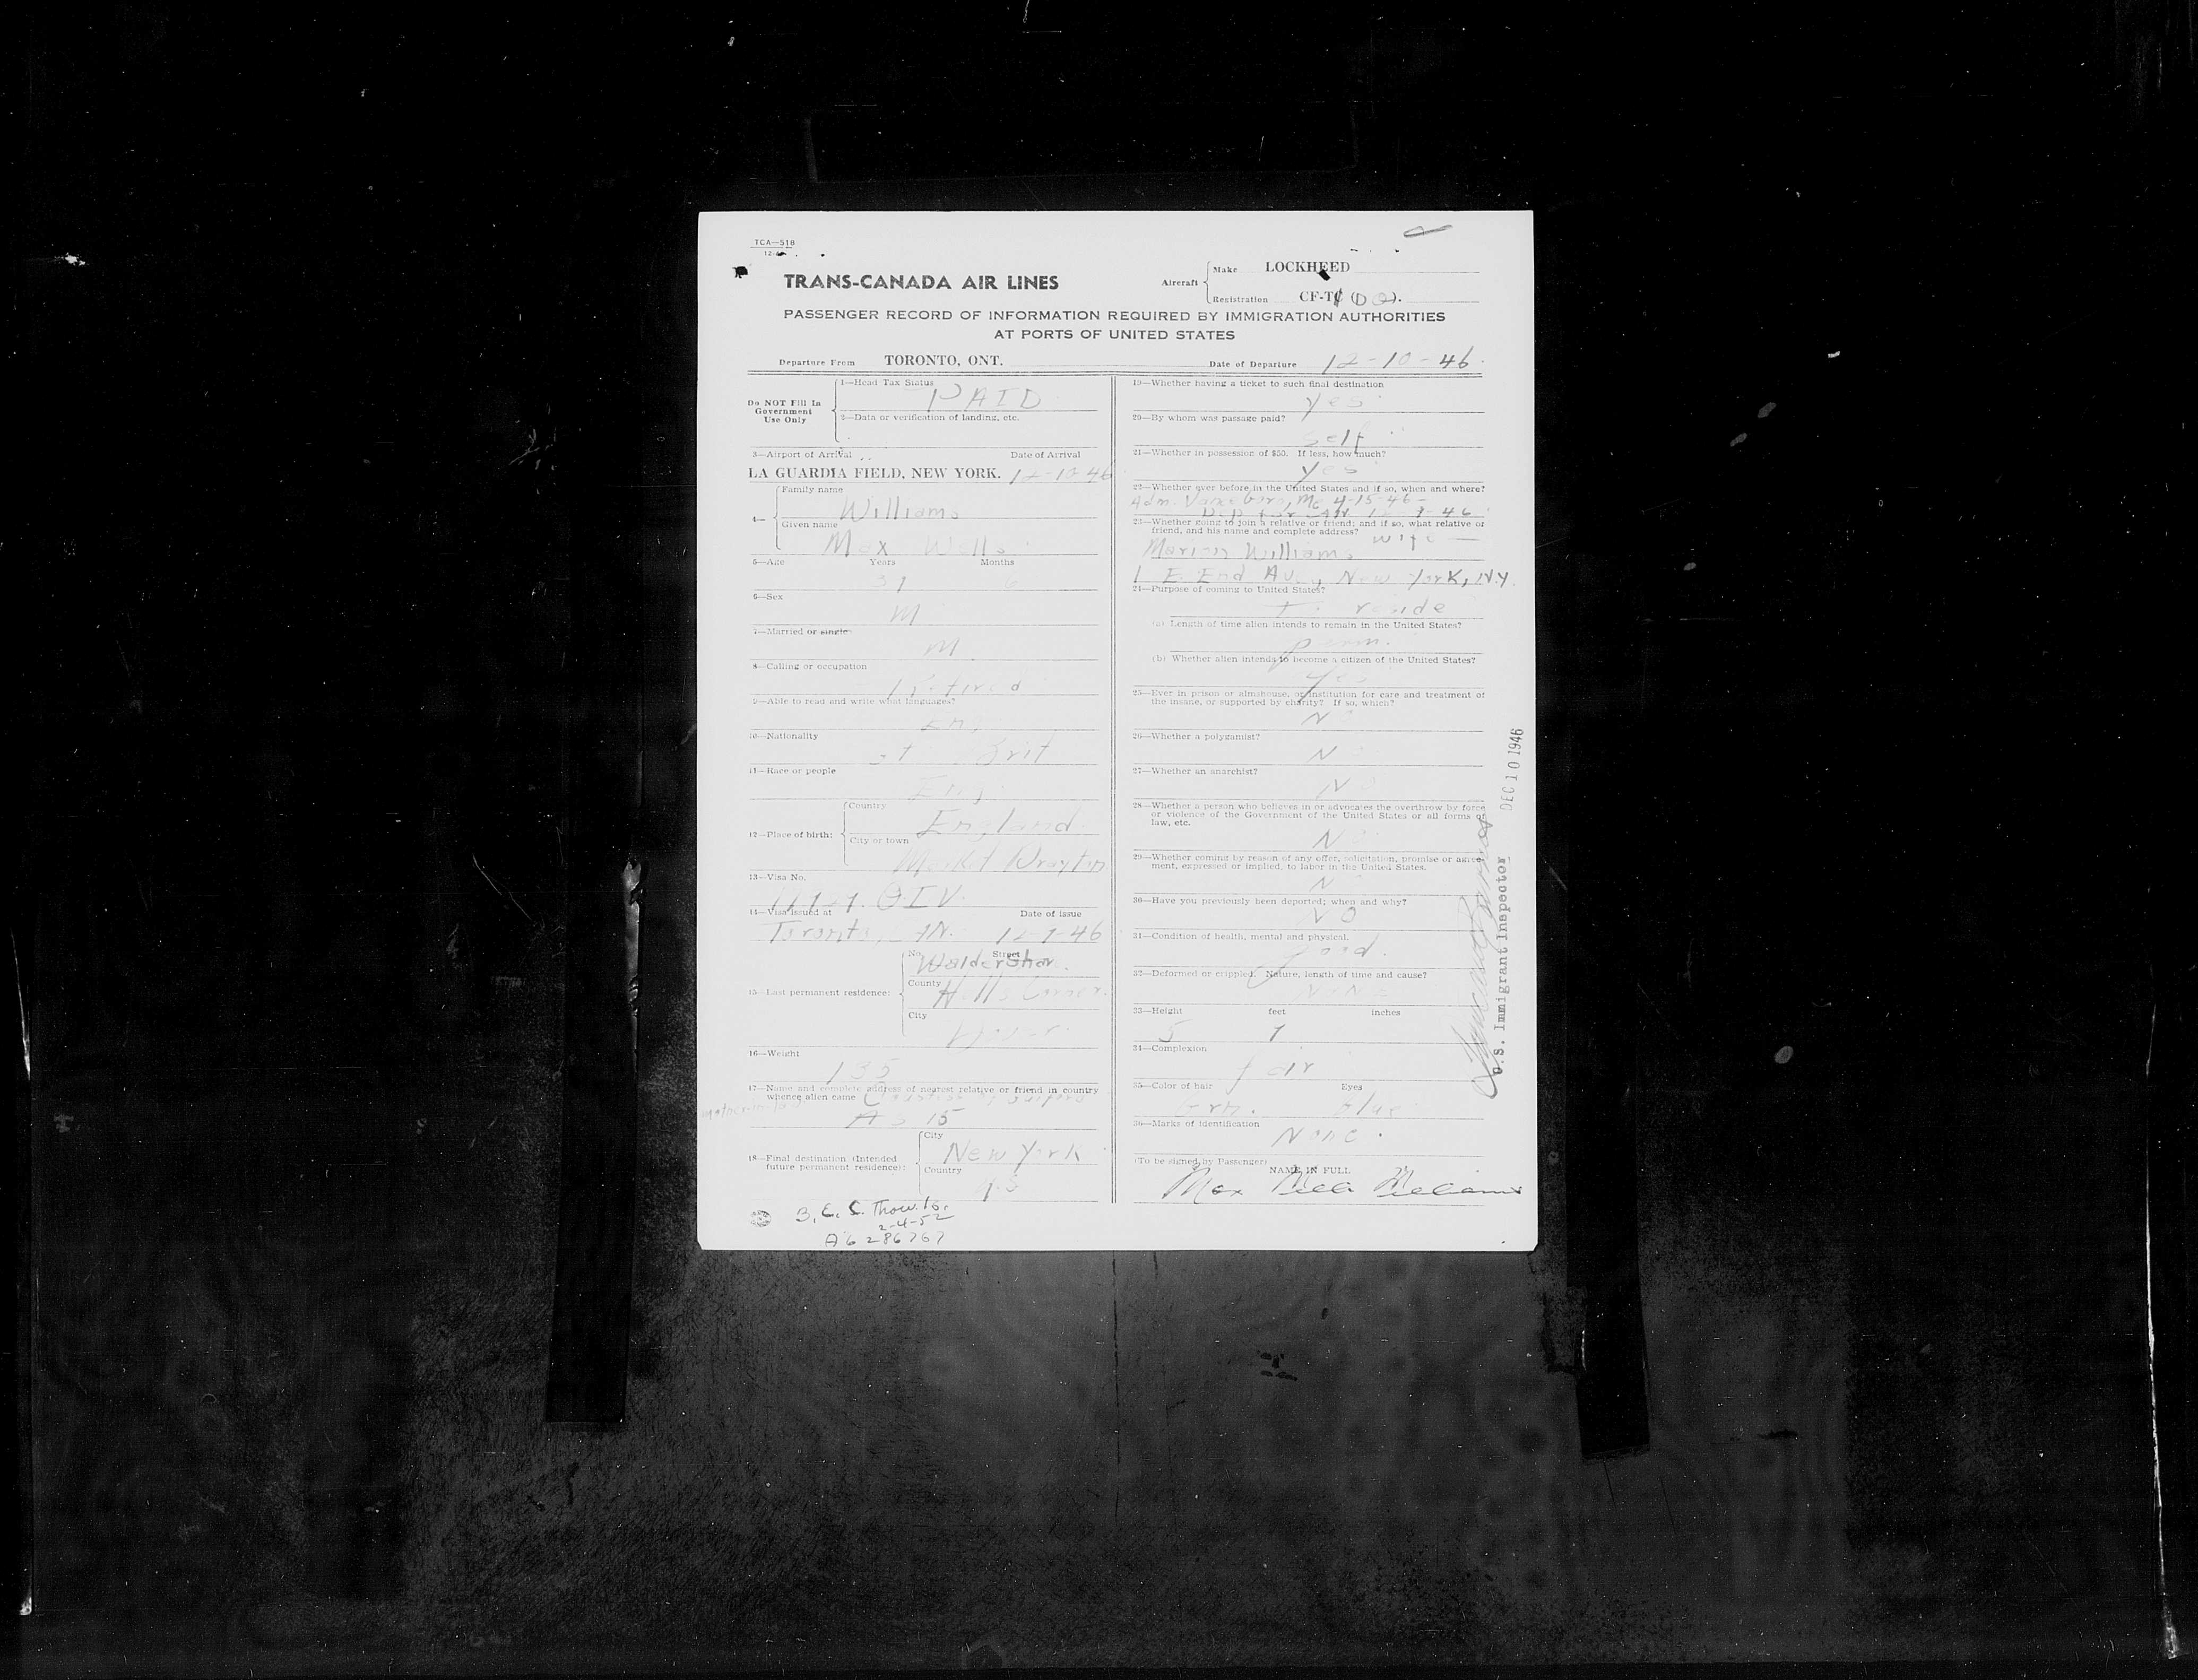 TCA—518
TRANS-CANADA AIR LINES
Aircraft
Make LOCKHEED
Registration CF-T
PASSENGER RECORD OF INFORMATION REQUIRED BY IMMIGRATION AUTHORITIES
AT PORTS OF UNITED STATES
Departure From TORONTO, ONT.
Date of Departure 12-10-46
Do NOT Fill In
Government
Use Only
1—Head Tax Status
PAID
2—Data or verification of landing, etc.
3—Airport of Arrival Date of Arrival
LA GUARDIA FIELD, NEW YORK. 12-10-46
4—
Family name
Williams
Given name
Max Wells
5—Age Years Months
6—Sex
M
7—Married or single
M
8—Calling or occupation
Retired
9—Able to read and write what languages?
Eng
10—Nationality
Brit
11—Race or people
Eng.
12—Place of birth:
Country
England
City or town
Market Drayton
13—Visa No.
QIV.
14—Visa issued at Date of issue
Toronto, 12-9-46
15—Last permanent residence:
No. Street
Waldershar
County
City
16—Weight
135
17—Name and complete address of nearest relative or friend in country
whence alien came
mother-in-law
AS 15
18—Final destination (Intended
future permanent residence):
City
New York
Country
19—Whether having a ticket to such final destination
Yes
20—By whom was passage paid?
Self
21—Whether in possession of $50. If less, how much?
Yes
22—Whether ever before in the United States and if so, when and where?
Adm. Vanceboro, Me 4-15-46-
23—Whether going to join a relative or friend; and if so, what relative or
friend, and his name and complete address? wife —
Marion Williams
1 E. End Ave, New York, N.Y.
24—Purpose of coming to United States?
To reside
(a) Length of time alien intends to remain in the United States?
perm.
(b) Whether alien intends to become a citizen of the United States?
Yes
25—Ever in prison or almshouse, or institution for care and treatment of
the insane, or supported by charity? If so, which?
No
26—Whether a polygamist?
No
27—Whether an anarchist?
No
28—Whether a person who believes in or advocates the overthrow by force
or violence of the Government of the United States or all forms of
law, etc.
No
29—Whether coming by reason of any offer, solicitation, promise or agree-
ment, expressed or implied, to labor in the United States.
No
30—Have you previously been deported; when and why?
NO
31—Condition of health, mental and physical.
good.
32—Deformed or crippled. Nature, length of time and cause?
None
33—Height feet inches
5
34—Complexion
fair
35—Color of hair Eyes
Brn. blue
36—Marks of identification
None.
(To be signed by Passenger)
NAME IN FULL
Max Wells Williams
U.S. Immigrant Inspector DEC 10 1946
2-4-52
A6286767